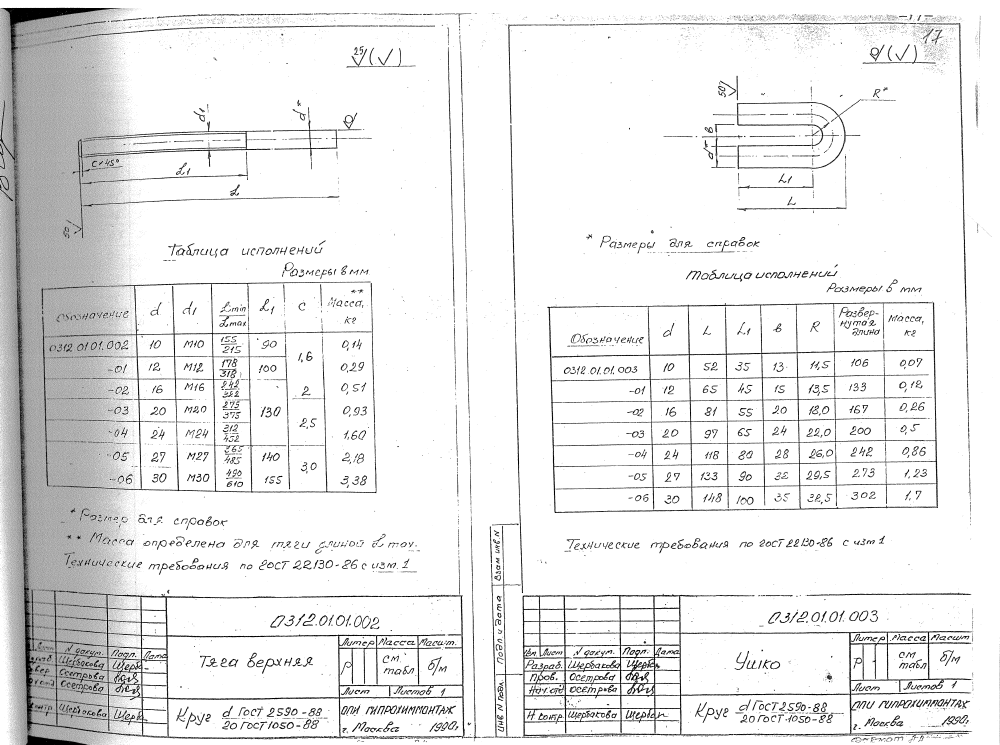 25 √(√)
d1
d*
c×45°
L1
L
50
Таблица исполнений
Размеры в мм
Обозначение d d1 Lmin/Lmax L1 c Масса,** кг
0312.01.01.002 10 М10 155/215 90 1,6 0,14
-01 12 М12 178/318 100 0,29
-02 16 М16 242/322 130 2 0,51
-03 20 М20 275/375 2,5 0,93
-04 24 М24 312/452 1,60
-05 27 М27 485 140 3,0 2,18
-06 30 М30 490/610 155 3,38
* Размер для справок
** Масса определена для тяги длиной L max.
Технические требования по ГОСТ 22130-86 с изм. 1
0312.01.01.002
Литер Масса Масшт.
N докум. Подп. Дата
Щербакова
Осетрова
Осетрова
Щербакова
Тяга верхняя
Р см. табл б/м
Лист Листов 1
Круг d ГОСТ 2590-88 / 20 ГОСТ 1050-88
СПИ ГИПРОХИММОНТАЖ
г. Москва 1990г.
17
√(√)
50
R*
d* в
L1
L
* Размеры для справок
Таблица исполнений
Размеры в мм
Обозначение d L L1 в R Развернутая длина Масса, кг
0312.01.01.003 10 52 35 13 11,5 106 0,07
-01 12 65 45 15 13,5 133 0,12
-02 16 81 55 20 18,0 167 0,26
-03 20 97 65 24 22,0 200 0,5
-04 24 118 80 28 26,0 242 0,86
-05 27 133 90 32 29,5 273 1,23
-06 30 148 100 35 32,5 302 1,7
Технические требования по ГОСТ 22130-86 с изм 1
Взам инв. N
Подп. и дата
Инв N подл.
0312.01.01.003
Литер Масса Масшт
Изм. Лист N докум. Подп. Дата
Разраб. Щербакова
Пров. Осетрова
Нач.отд Осетрова
Н контр. Щербакова
Ушко
Р см. табл б/м
Лист Листов 1
Круг d ГОСТ 2590-88 / 20 ГОСТ 1050-88
СПИ ГИПРОХИММОНТАЖ
г. Москва 1990г.